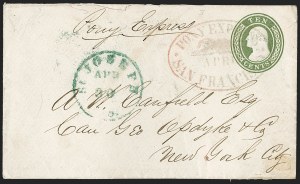 Pony Express
PONY EXPRESS
SAN FRANCISCO
TEN
CENTS
ST JOSEPH
APR
23
A. N. Canfield Esq
Care Geo Opdyke & Co
New York City